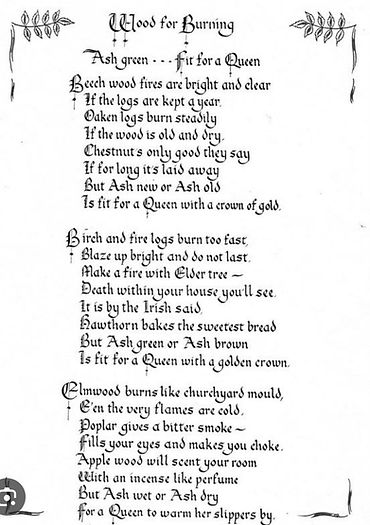 Wood for Burning
Ash green --- Fit for a Queen
Beech wood fires are bright and clear
If the logs are kept a year.
Oaken logs burn steadily
If the wood is old and dry.
Chestnut's only good they say
If for long it's laid away
But Ash new or Ash old
Is fit for a Queen with a crown of gold.
Birch and fire logs burn too fast,
Blaze up bright and do not last.
Make a fire with Elder tree –
Death within your house you'll see.
It is by the Irish said,
Hawthorn bakes the sweetest bread
But Ash green or Ash brown
Is fit for a Queen with a golden crown.
Elmwood burns like churchyard mould,
E'en the very flames are cold.
Poplar gives a bitter smoke –
Fills your eyes and makes you choke.
Apple wood will scent your room
With an incense like perfume
But Ash wet or Ash dry
For a Queen to warm her slippers by.